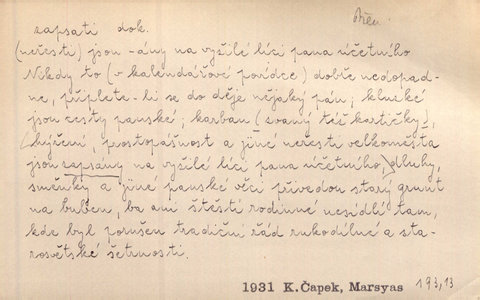 zapsati dok.
(neřesti) jsou -ány na vyžilé líci pana účetního
Nikdy to (v kalendářové povídce) dobře nedopad-
ne, připlete-li se do děje nějaký pán; kluzké
jsou cesty panské; karban (zvaný též kartičky),
hýření, prostopášnost a jiné neresti velkoměsta
jsou zapsány na vyžilé líci pana účetního, dluhy,
směnky a jiné panské věci přivedou starý grunt
na buben, ba ani štěstí rodinné nesídlí tam,
kde byl porušen tradiční řád rukodílné a sta-
rosvětské šetrnosti.
1931 K.Čapek, Marsyas 193,13